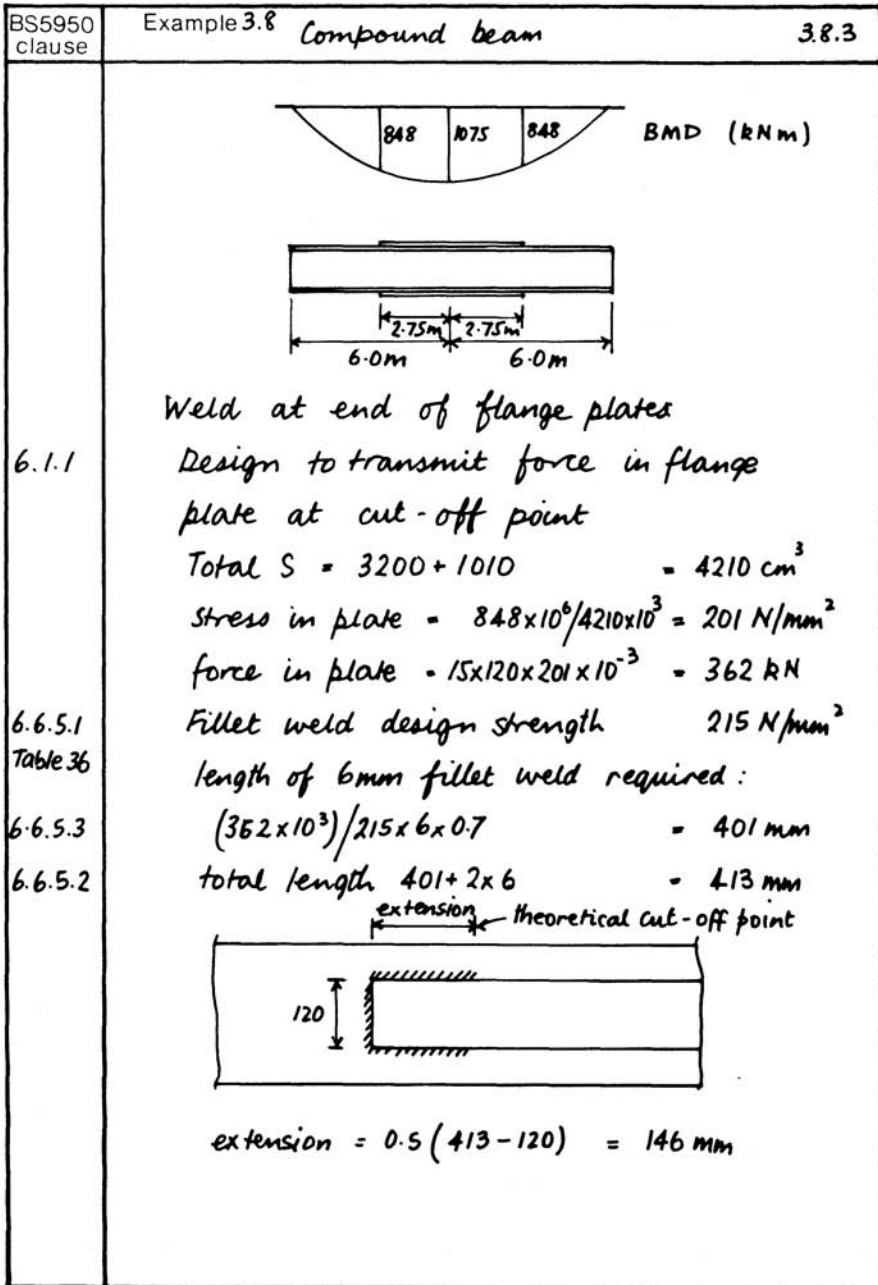 BS5950 clause
Example 3.8 Compound beam 3.8.3
848 1075 848 BMD (kNm)
2.75m 2.75m
6.0m 6.0m
Weld at end of flange plates
6.1.1 Design to transmit force in flange
plate at cut-off point
Total S = 3200 + 1010 = 4210 cm³
stress in plate = 848x10⁶/4210x10³ = 201 N/mm²
force in plate = 15x120x201x10⁻³ = 362 kN
6.6.5.1 Fillet weld design strength 215 N/mm²
Table 36
length of 6mm fillet weld required:
6.6.5.3 (362x10³)/215x6x0.7 = 401 mm
6.6.5.2 total length 401+2x6 = 413 mm
extension theoretical cut-off point
120
extension = 0.5(413-120) = 146 mm